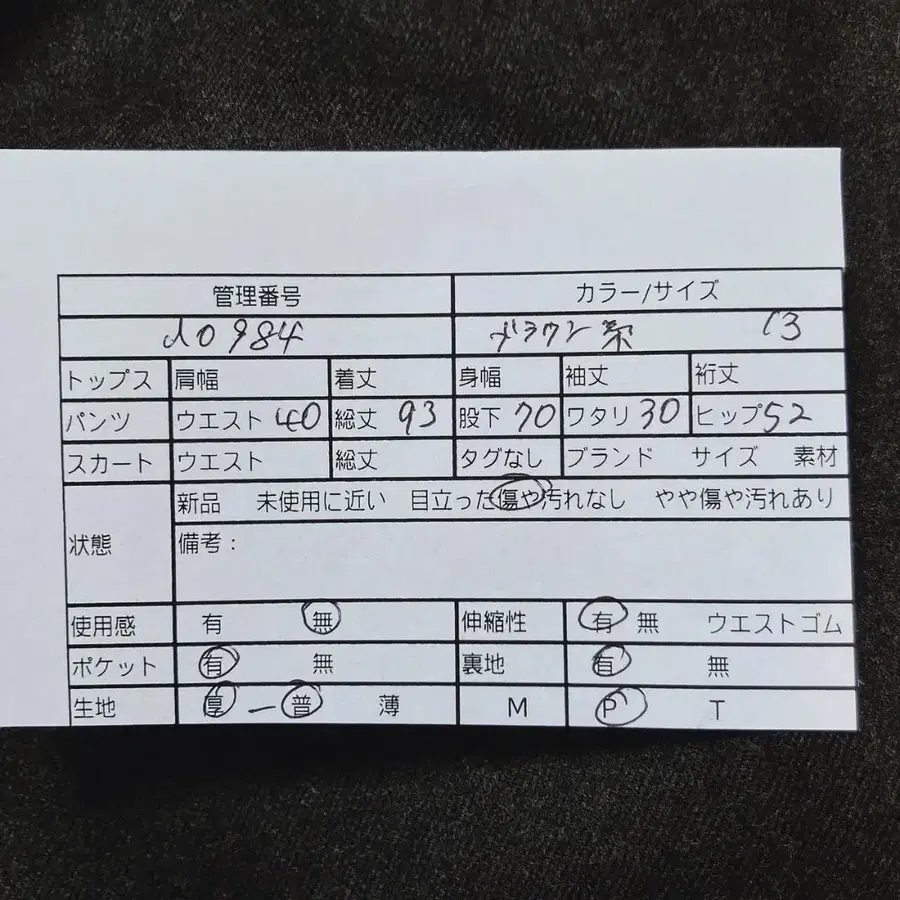 管理番号 カラー/サイズ
d0984 ブラウン系 13
トップス 肩幅 着丈 身幅 袖丈 裄丈
パンツ ウエスト 40 総丈 93 股下 70 ワタリ 30 ヒップ 52
スカート ウエスト 総丈 タグなし ブランド サイズ 素材
状態 新品 未使用に近い 目立った傷や汚れなし やや傷や汚れあり
備考:
使用感 有 無 伸縮性 有 無 ウエストゴム
ポケット 有 無 裏地 有 無
生地 厚 ー 普 薄 M P T